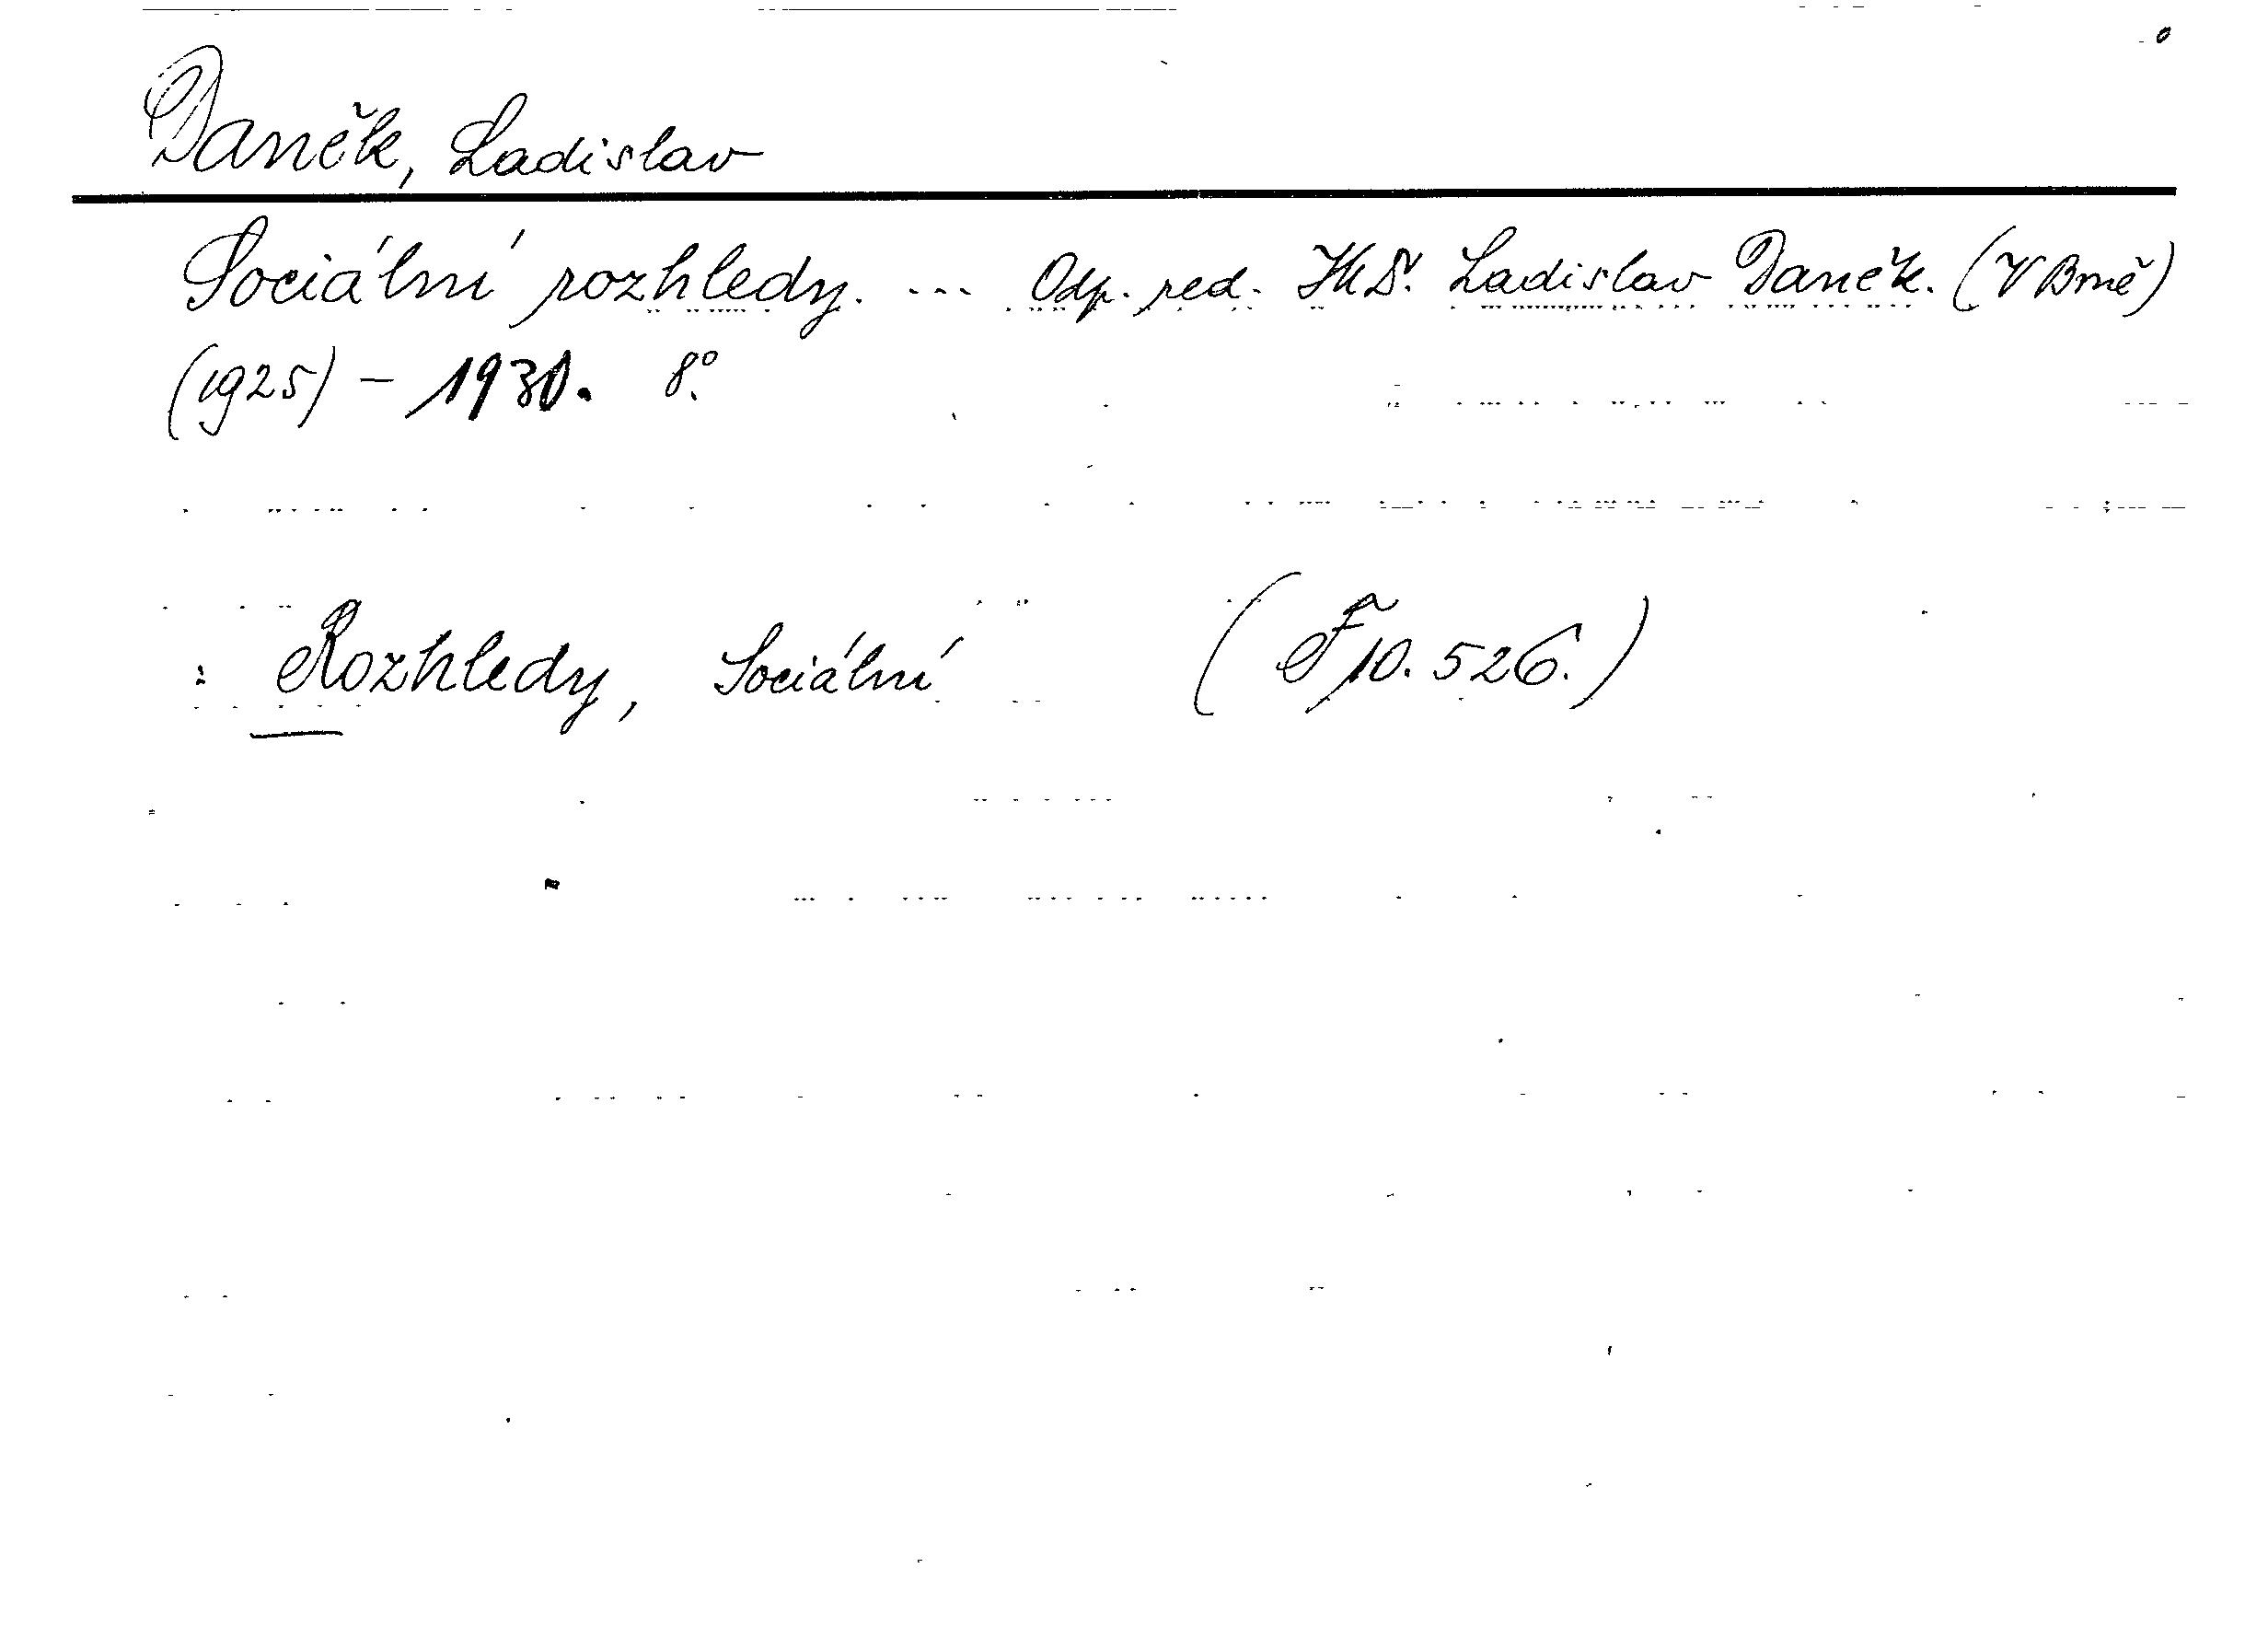 Daněk, Ladislav
Sociální rozhledy. ... Odp. red. Ladislav Daněk. (V Brně)
(1925) – 1930. 8°.
: Rozhledy, Sociální (F 10.526.)